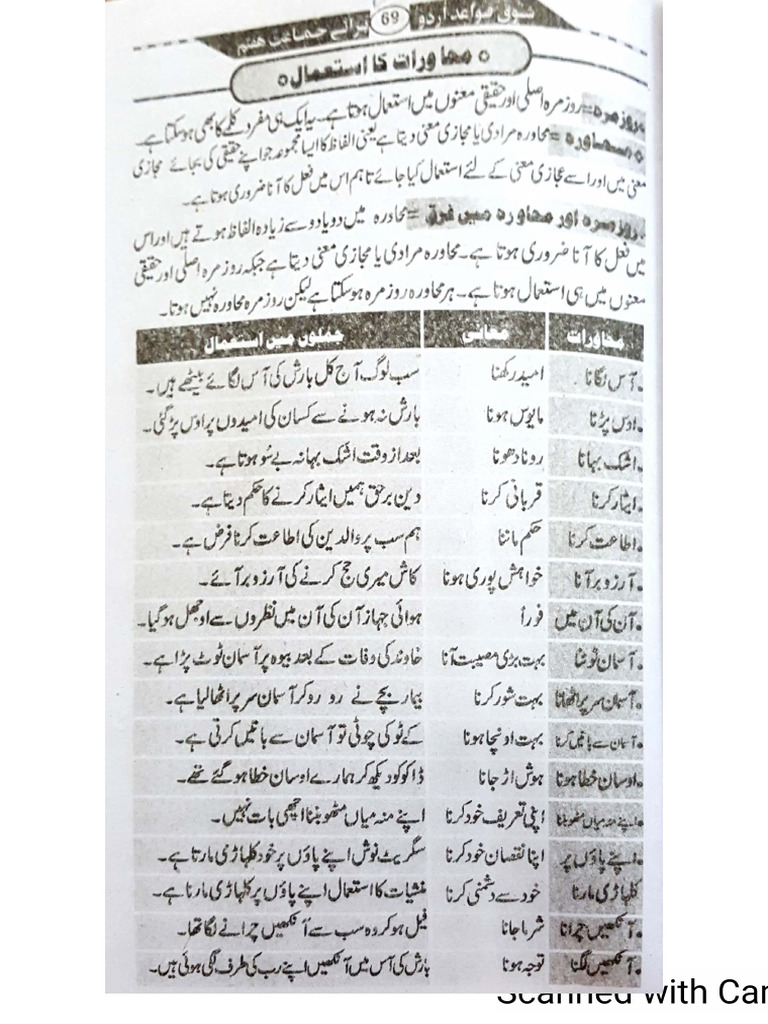 شوق قواعد اردو 69 برائے جماعت ہفتم
محاورات کا استعمال
روزمرہ = روزمرہ اصلی اور حقیقی معنوں میں استعمال ہوتا ہے۔ یہ ایک ہی مفرد کلمے کا بھی ہو سکتا ہے۔
محاورہ = محاورہ مرادی یا مجازی معنی دیتا ہے یعنی الفاظ کا ایسا مجموعہ جو اپنے حقیقی کی بجائے مجازی
معنی میں اور اسے مجازی معنی کے لئے استعمال کیا جائے تاہم اس میں فعل کا آنا ضروری ہوتا ہے۔
روزمرہ اور محاورہ میں فرق = محاورہ میں دو یا دو سے زیادہ الفاظ ہوتے ہیں اور اس
میں فعل کا آنا ضروری ہوتا ہے۔ محاورہ مرادی یا مجازی معنی دیتا ہے جبکہ روزمرہ اصلی اور حقیقی
معنوں میں ہی استعمال ہوتا ہے۔ ہر محاورہ روزمرہ ہو سکتا ہے لیکن روزمرہ محاورہ نہیں ہوتا۔
محاورات معانی جملوں میں استعمال
آس لگانا امید رکھنا سب لوگ آج کل بارش کی آس لگائے بیٹھے ہیں۔
اوس پڑنا مایوس ہونا بارش نہ ہونے سے کسان کی امیدوں پر اوس پڑ گئی۔
اشک بہانا رونا دھونا بعد از وقت اشک بہانہ بے سُو ہوتا ہے۔
ایثار کرنا قربانی کرنا دین برحق ہمیں ایثار کرنے کا حکم دیتا ہے۔
اطاعت کرنا حکم ماننا ہم سب پر والدین کی اطاعت کرنا فرض ہے۔
آرزو بر آنا خواہش پوری ہونا کاش میری حج کرنے کی آرزو بر آئے۔
آن کی آن میں فوراً ہوائی جہاز آن کی آن میں نظروں سے اوجھل ہو گیا۔
آسمان ٹوٹنا بہت بڑی مصیبت آنا خاوند کی وفات کے بعد بیوہ پر آسمان ٹوٹ پڑا ہے۔
آسمان سر پر اٹھانا بہت شور کرنا بیمار بچے نے رو رو کر آسمان سر پر اٹھا لیا ہے۔
آسمان سے باتیں کرنا بہت اونچا ہونا کے ٹو کی چوٹی تو آسمان سے باتیں کرتی ہے۔
اوسان خطا ہونا ہوش اڑ جانا ڈاکو کو دیکھ کر ہمارے اوسان خطا ہو گئے تھے۔
اپنے منہ میاں مٹھو بننا اپنی تعریف خود کرنا اپنے منہ میاں مٹھو بننا اچھی بات نہیں۔
اپنے پاؤں پر اپنا نقصان خود کرنا سگریٹ نوش اپنے پاؤں پر خود کلہاڑی مارتا ہے۔
کلہاڑی مارنا خود سے دشمنی کرنا منشیات کا استعمال اپنے پاؤں پر کلہاڑی مارنا ہے۔
آنکھیں چرانا شرما جانا فیل ہو کر وہ سب سے آنکھیں چرانے لگا تھا۔
آنکھیں لگنا توجہ ہونا بارش کی آس میں آنکھیں اپنے رب کی طرف لگی ہوئی ہیں۔
Scanned with Car